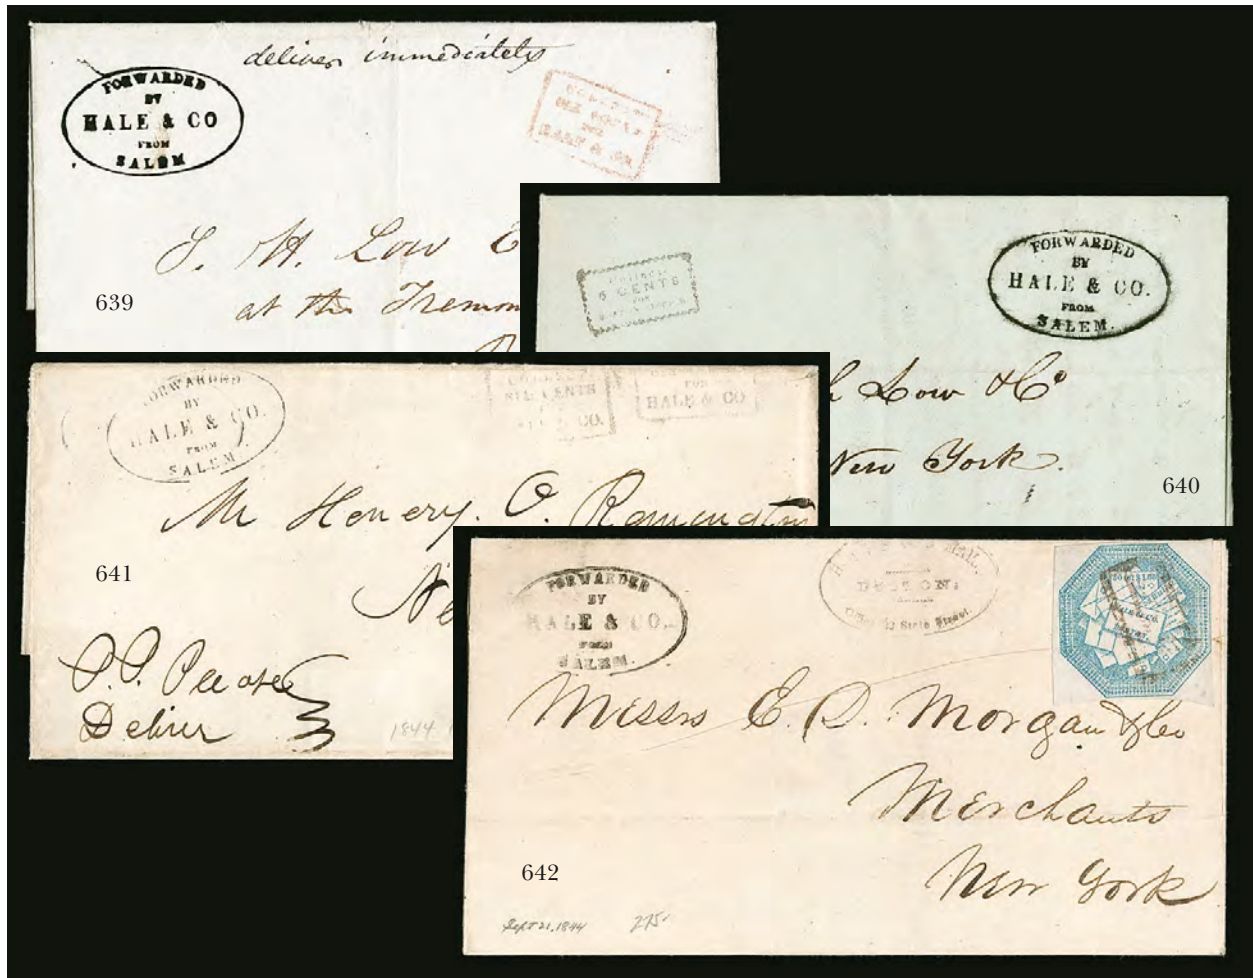 deliver immediately
FORWARDED
BY
HALE & CO
FROM
SALEM
HALE & CO
S. H. Low
at the Tremon
639
6 CENTS
FOR
FORWARDED
BY
HALE & CO.
FROM
SALEM.
h Low & Co
New York.
640
FORWARDED
BY
HALE & CO.
FROM
SALEM.
CENTS
& CO.
FOR
HALE & CO
Mr Henery. O. Remington
Ne
641
P. P. Please
Deliver
1844
FORWARDED
BY
HALE & CO.
FROM
SALEM.
MAIL.
BOSTON:
State Street.
Messrs E. D. Morgan & Co
Merchants
New York
642
Sept 21, 1844 275